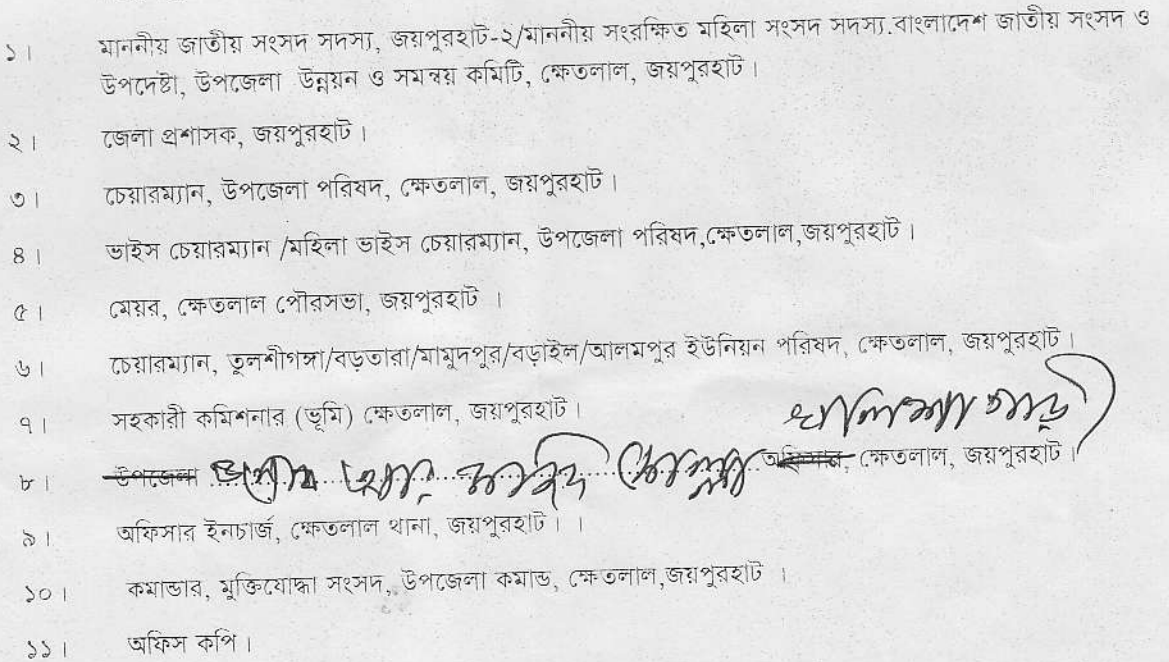 ১। মাননীয় জাতীয় সংসদ সদস্য, জয়পুরহাট-২/মাননীয় সংরক্ষিত মহিলা সংসদ সদস্য.বাংলাদেশ জাতীয় সংসদ ও
উপদেষ্টা, উপজেলা উন্নয়ন ও সমন্বয় কমিটি, ক্ষেতলাল, জয়পুরহাট।
২। জেলা প্রশাসক, জয়পুরহাট।
৩। চেয়ারম্যান, উপজেলা পরিষদ, ক্ষেতলাল, জয়পুরহাট।
৪। ভাইস চেয়ারম্যান /মহিলা ভাইস চেয়ারম্যান, উপজেলা পরিষদ,ক্ষেতলাল,জয়পুরহাট।
৫। মেয়র, ক্ষেতলাল পৌরসভা, জয়পুরহাট ।
৬। চেয়ারম্যান, তুলশীগঙ্গা/বড়তারা/মামুদপুর/বড়াইল/আলমপুর ইউনিয়ন পরিষদ, ক্ষেতলাল, জয়পুরহাট।
৭। সহকারী কমিশনার (ভূমি) ক্ষেতলাল, জয়পুরহাট।
৮। উপজেলা অফিসার, ক্ষেতলাল, জয়পুরহাট।
৯। অফিসার ইনচার্জ, ক্ষেতলাল থানা, জয়পুরহাট। ।
১০। কমান্ডার, মুক্তিযোদ্ধা সংসদ, উপজেলা কমান্ড, ক্ষেতলাল,জয়পুরহাট ।
১১। অফিস কপি।